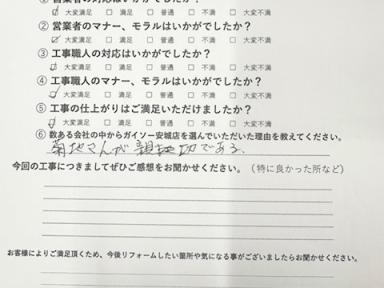 ① 営業者の対応はいかがでしたか？
☑ 大変満足 □ 満足 □ 普通 □ 不満 □ 大変不満
② 営業者のマナー、モラルはいかがでしたか？
☑ 大変満足 □ 満足 □ 普通 □ 不満 □ 大変不満
③ 工事職人の対応はいかがでしたか？
☑ 大変満足 □ 満足 □ 普通 □ 不満 □ 大変不満
④ 工事職人のマナー、モラルはいかがでしたか？
☑ 大変満足 □ 満足 □ 普通 □ 不満 □ 大変不満
⑤ 工事の仕上がりはご満足いただけましたか？
☑ 大変満足 □ 満足 □ 普通 □ 不満 □ 大変不満
⑥ 数ある会社の中からガイソー安城店を選んでいただいた理由を教えてください。
菊地さんが親切である。
今回の工事につきましてぜひご感想をお聞かせください。（特に良かった所など）
お客様によりご満足頂くため、今後リフォームしたい箇所や気になる事がございましたらお聞かせください。